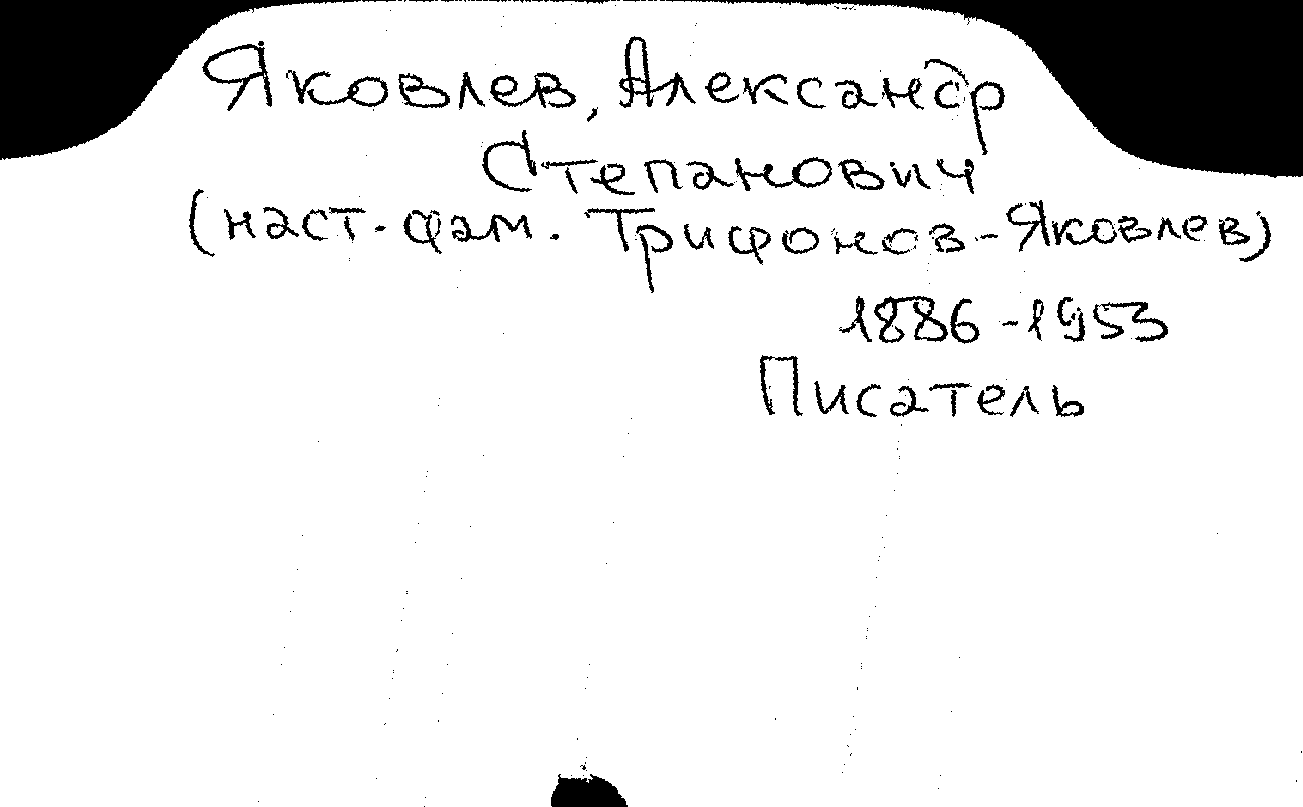 Яковлев, Александр
Степанович
(наст. фам. Трифонов-Яковлев)
1886-1953
Писатель